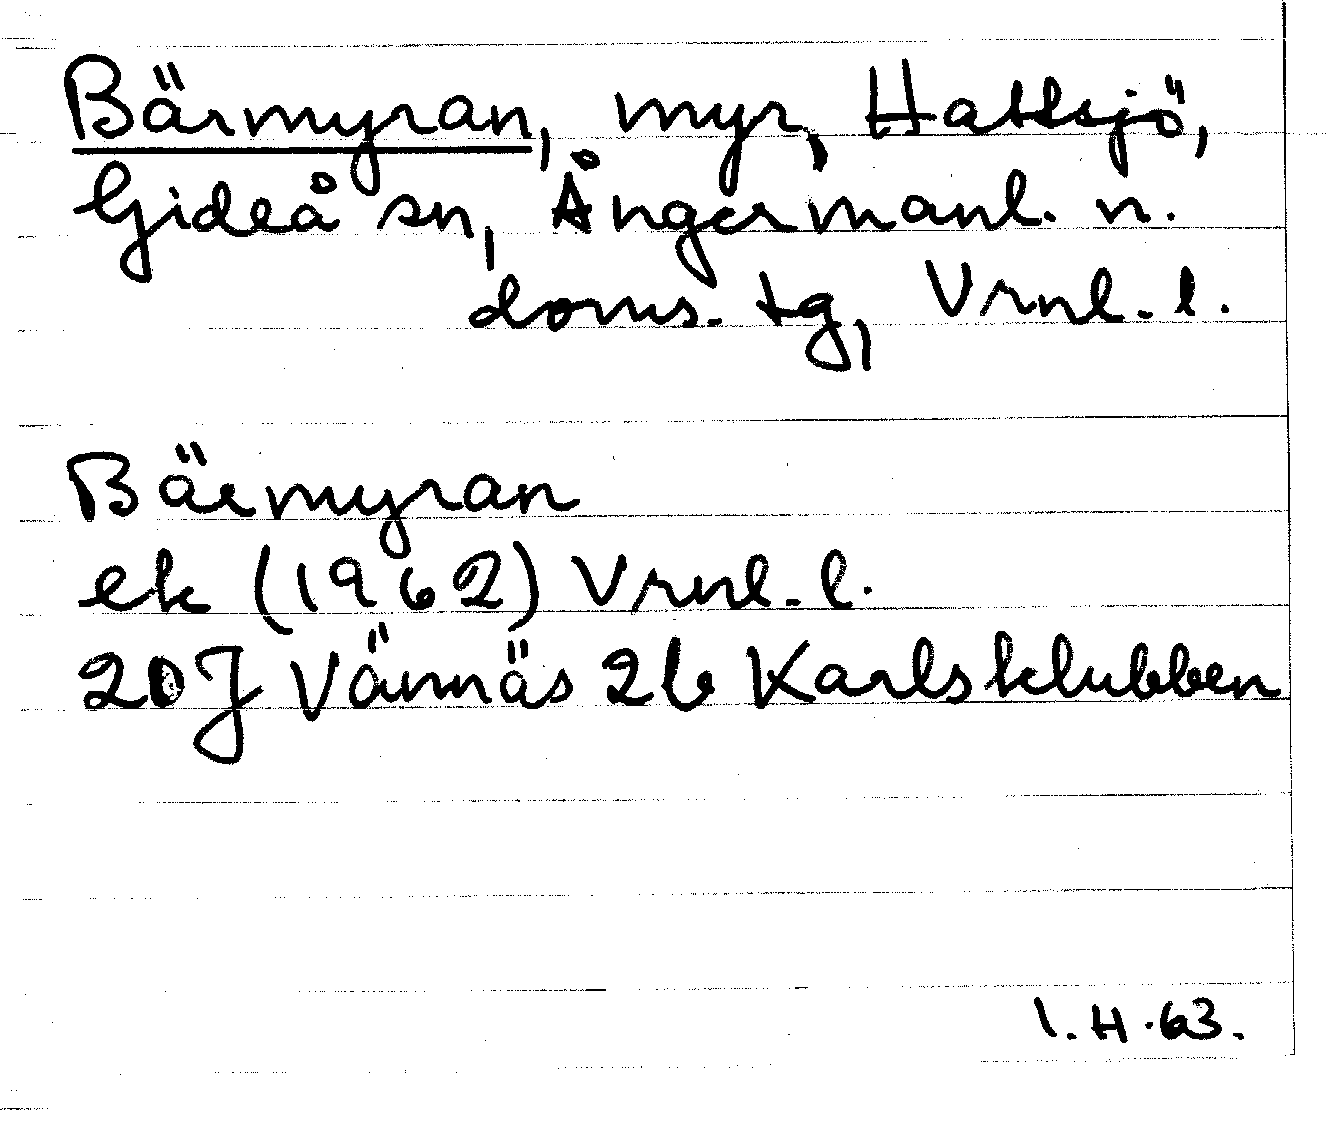 Bärmyran, myr, Hattsjö,
Gideå sn, Ångermanl. n.
doms. tg, Vrnl. l.
Bärmyran
ek (1962) Vrnl. l.
20J Vännäs 2b Karlsklubben
I. H. 63.